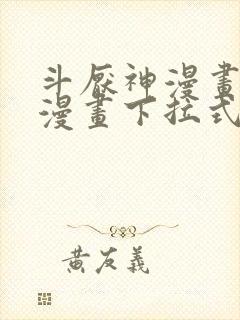 斗厭神漫畫
漫畫下拉式
黃友義